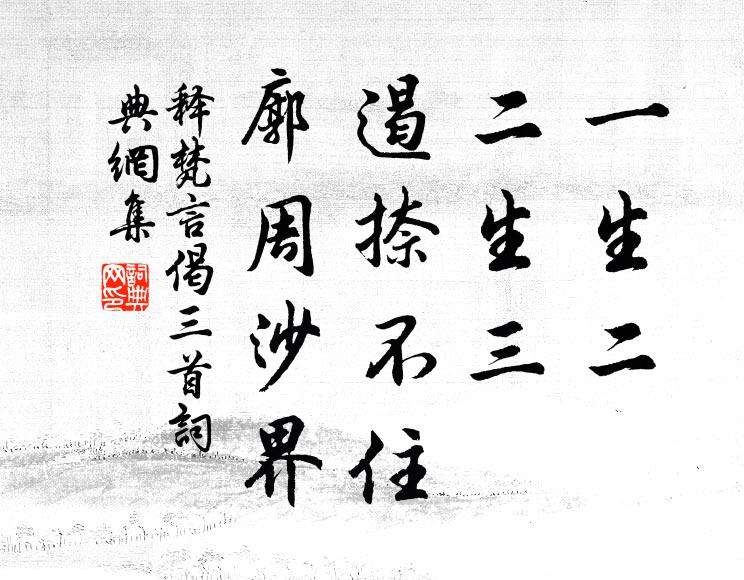 一生二
二生三
遏捺不住
廓周沙界
释梵言偈三首詞
典網集
詞典网印